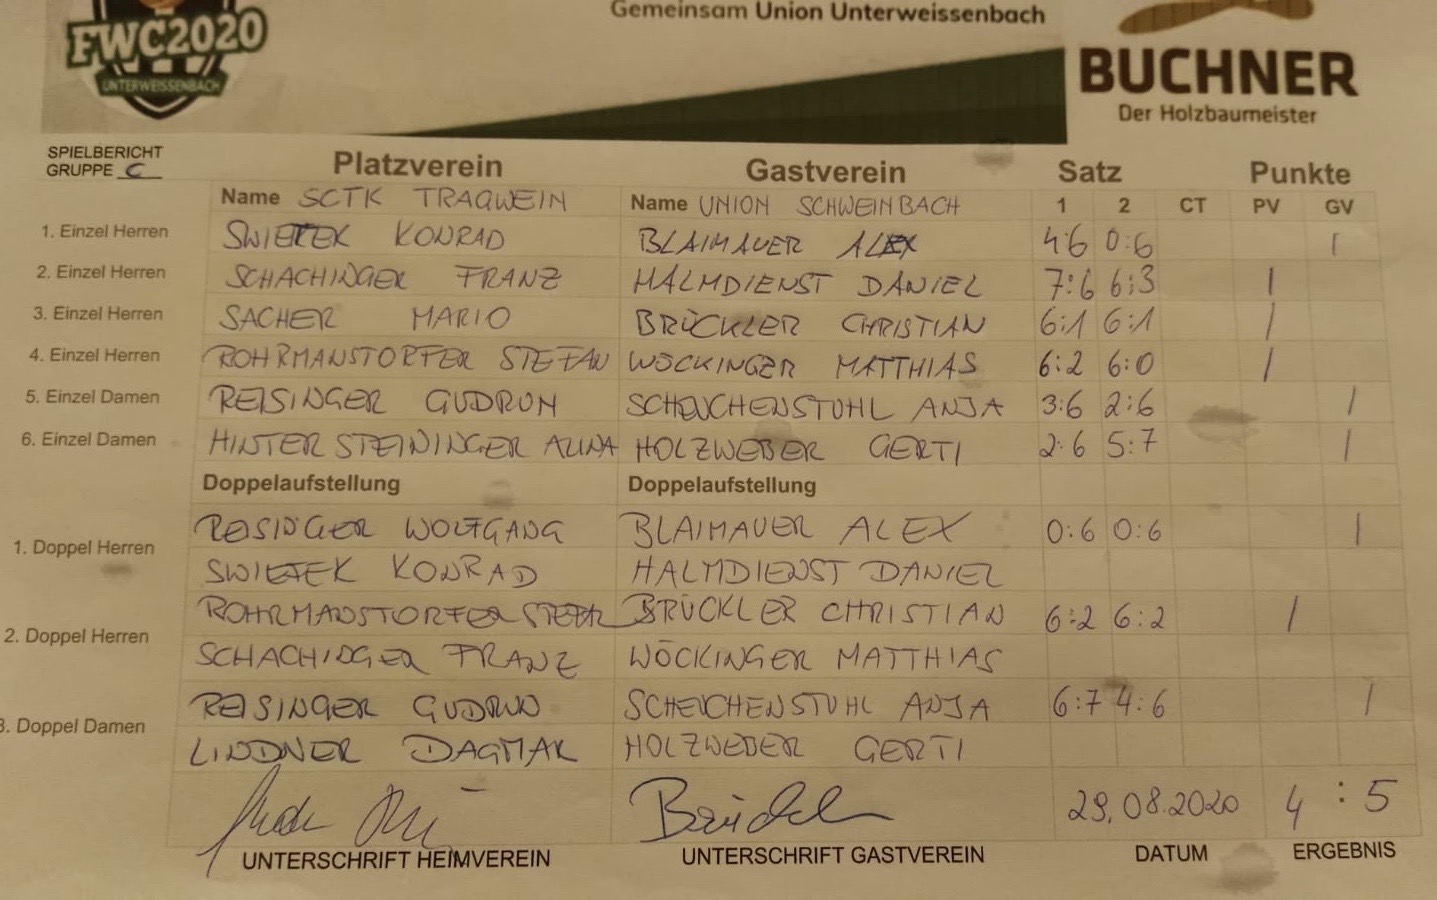 Gemeinsam Union Unterweissenbach
FWC2020
UNTERWEISSENBACH
BUCHNER
Der Holzbaumeister
SPIELBERICHT
GRUPPE C
Platzverein Gastverein Satz Punkte
Name SCTK TRAGWEIN Name UNION SCHWEINBACH 1 2 CT PV GV
1. Einzel Herren SWIETEK KONRAD BLAIMAUER ALEX 4:6 0:6 |
2. Einzel Herren SCHACHINGER FRANZ HALMDIENST DANIEL 7:6 6:3 |
3. Einzel Herren SACHER MARIO BRÜCKLER CHRISTIAN 6:1 6:1 |
4. Einzel Herren ROHRMANSTORFER STEFAN WÖCKINGER MATTHIAS 6:2 6:0 |
5. Einzel Damen REISINGER GUDRUN SCHEUCHENSTUHL ANJA 3:6 2:6 |
6. Einzel Damen HINTERSTEININGER ALINA HOLZWEBER GERTI 2:6 5:7 |
Doppelaufstellung Doppelaufstellung
1. Doppel Herren REISINGER WOLFGANG BLAIMAUER ALEX 0:6 0:6 |
SWIETEK KONRAD HALMDIENST DANIEL
2. Doppel Herren ROHRMANSTORFER STEFAN BRÜCKLER CHRISTIAN 6:2 6:2 |
SCHACHINGER FRANZ WÖCKINGER MATTHIAS
3. Doppel Damen REISINGER GUDRUN SCHEUCHENSTUHL ANJA 6:7 4:6 |
LINDNER DAGMAR HOLZWEBER GERTI
29.08.2020 4 : 5
UNTERSCHRIFT HEIMVEREIN UNTERSCHRIFT GASTVEREIN DATUM ERGEBNIS